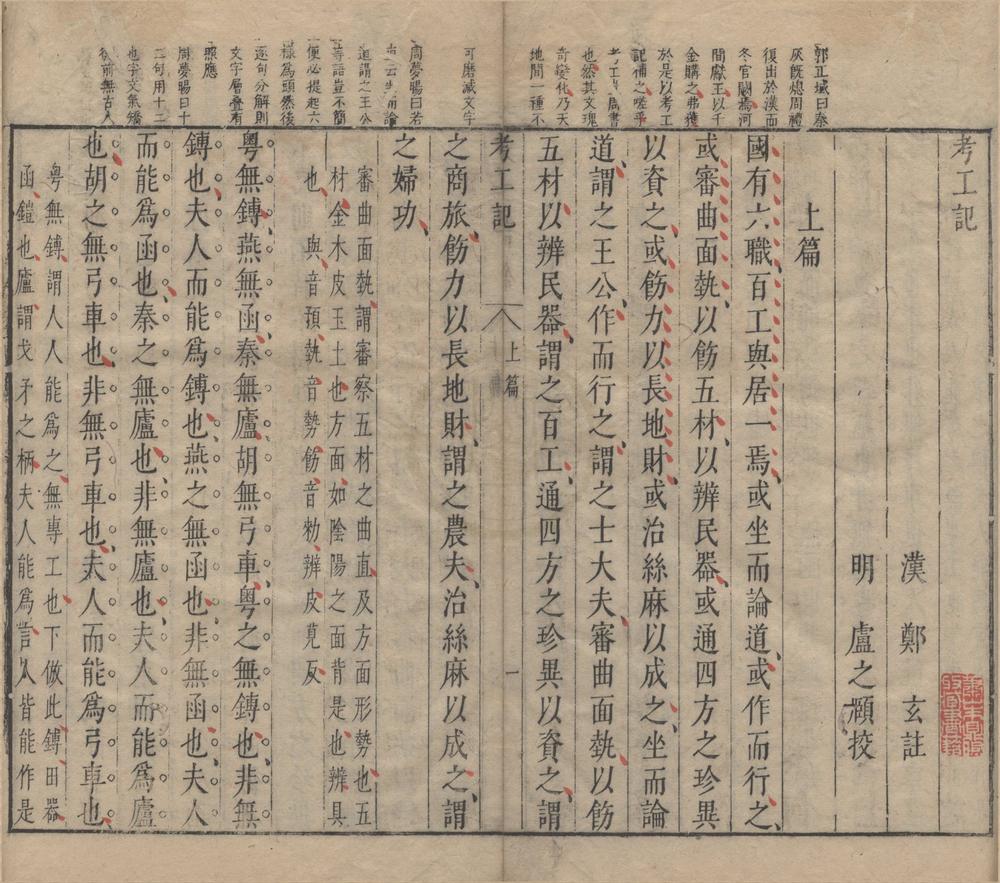 郭正域曰秦
灰既熄周禮
復出於漢而
冬官闕焉河
間獻王以千
金購之弗獲
於是以考工
記補之嗟乎
考工 周書
也然其文瑰
奇變化乃天
地間一種不
可磨滅文字
周夢暘曰若
云 而論
道謂之王公
等語豈不簡
便必提起六
様為頭然後
逐句分解則
文字層疊有
照應
周夢暘曰十
二句用十二
也字文氣矯
前無古人
考工記
漢 鄭 玄註
明 盧之頥挍
上篇
國有六職、百工與居一焉、或坐而論道、或作而行之、
或審曲面埶、以飭五材、以辨民器、或通四方之珍異
以資之、或飭力以長地財、或治絲麻以成之、坐而論
道、謂之王公、作而行之、謂之士大夫、審曲面埶、以飭
五材以辨民器、謂之百工、通四方之珍異以資之、謂
考工記 上篇 一
之商旅、飭力以長地財、謂之農夫、治絲麻以成之、謂
之婦功、
審曲面埶、謂審察五材之曲直、及方面形勢也、五
材、金木皮玉土也、方面、如陰陽之面背是也、辨具
也、與音預、埶音勢、飭音勑、辨皮莧反
粵無鎛、燕無函、秦無廬、胡無弓車、粵之無鎛也、非無
鎛也、夫人而能爲鎛也、燕之無函也、非無函也、夫人
而能爲函也、秦之無廬也、非無廬也、夫人而能爲廬
也、胡之無弓車也、非無弓車也、夫人而能爲弓車也、
粵無鎛、謂人人能爲之、無專工也、下倣此、鎛、田器、
函、鎧也、廬、謂戈矛之柄、夫人能爲、言人人皆能作是